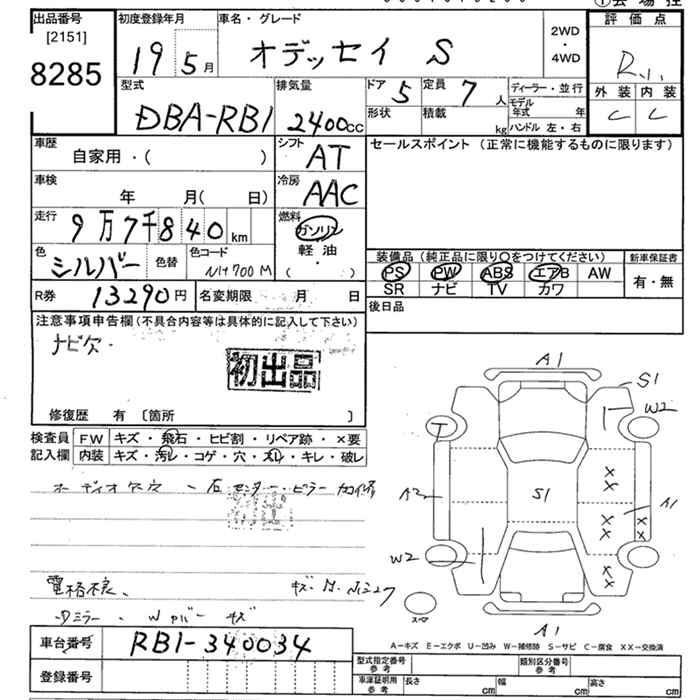 出品番号 [2151] 8285
初度登録年月 19 5月
車名・グレード オデッセイ S
2WD・4WD
評価点 R.1.
外装 C 内装 C
型式 DBA-RB1
排気量 2400cc
ドア 5 形状
定員 7人 積載 kg
ディーラー・並行
モデル年式 年
ハンドル 左・右
車歴 自家用・( )
シフト AT
セールスポイント (正常に機能するものに限ります)
車検 年 月( 日)
冷房 AAC
走行 9万7千840km
燃料 ガソリン 軽油 ( ・ )
色 シルバー 色替 色コード NH700M
装備品 (純正品に限り○をつけてください)
PS PW ABS エアB AW
SR ナビ TV カワ
新車保証書 有・無
R券 13290円 名変期限 月 日
後日品
注意事項申告欄(不具合内容等は具体的に記入して下さい)
ナビ欠.
初出品
修復歴 有 〔箇所 〕
検査員記入欄 FW キズ・飛石・ヒビ割・リペア跡・×要
内装 キズ・汚レ・コゲ・穴・スレ・キレ・破レ
A1
S1
W2
T
A2
S1
A1
W2
スペア
A1
オーディオ欠
センターピラー
電格不良、
キズ
ミラー・
キズ
A-キズ E-エクボ U-凹み W-補修跡 S-サビ C-腐食 XX-交換済
車台番号 RB1-340034
登録番号
型式指定番号 参考
類別区分番号 参考
車庫証明用 参考 長さ cm 幅 cm 高さ cm